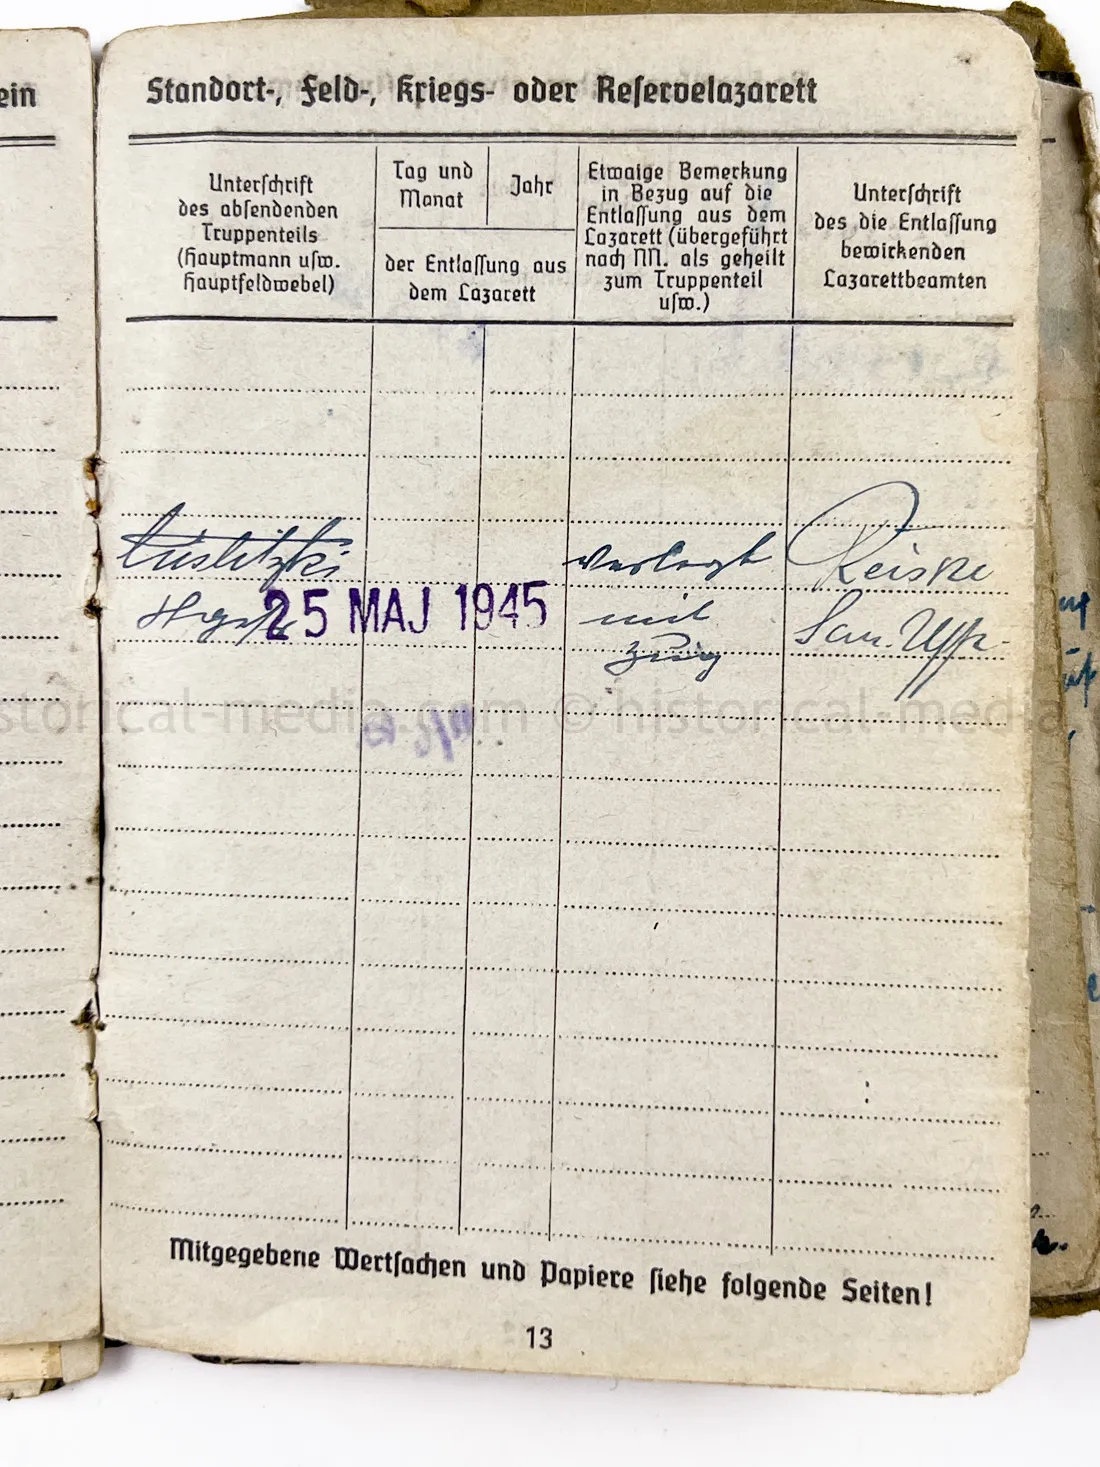 ein
Standort-, Feld-, Kriegs- oder Reservelazarett
Unterschrift
des absendenden
Truppenteils
(Hauptmann usw.
Hauptfeldwebel)
Tag und
Monat
Jahr
der Entlassung aus
dem Lazarett
Etwaige Bemerkung
in Bezug auf die
Entlassung aus dem
Lazarett (übergeführt
nach NN. als geheilt
zum Truppenteil
usw.)
Unterschrift
des die Entlassung
bewirkenden
Lazarettbeamten
verlegt
mit
Zug
Reiske
San. Uffz.
25 MAJ 1945
storical-media.com © historical-media.
Mitgegebene Wertsachen und Papiere siehe folgende Seiten!
13